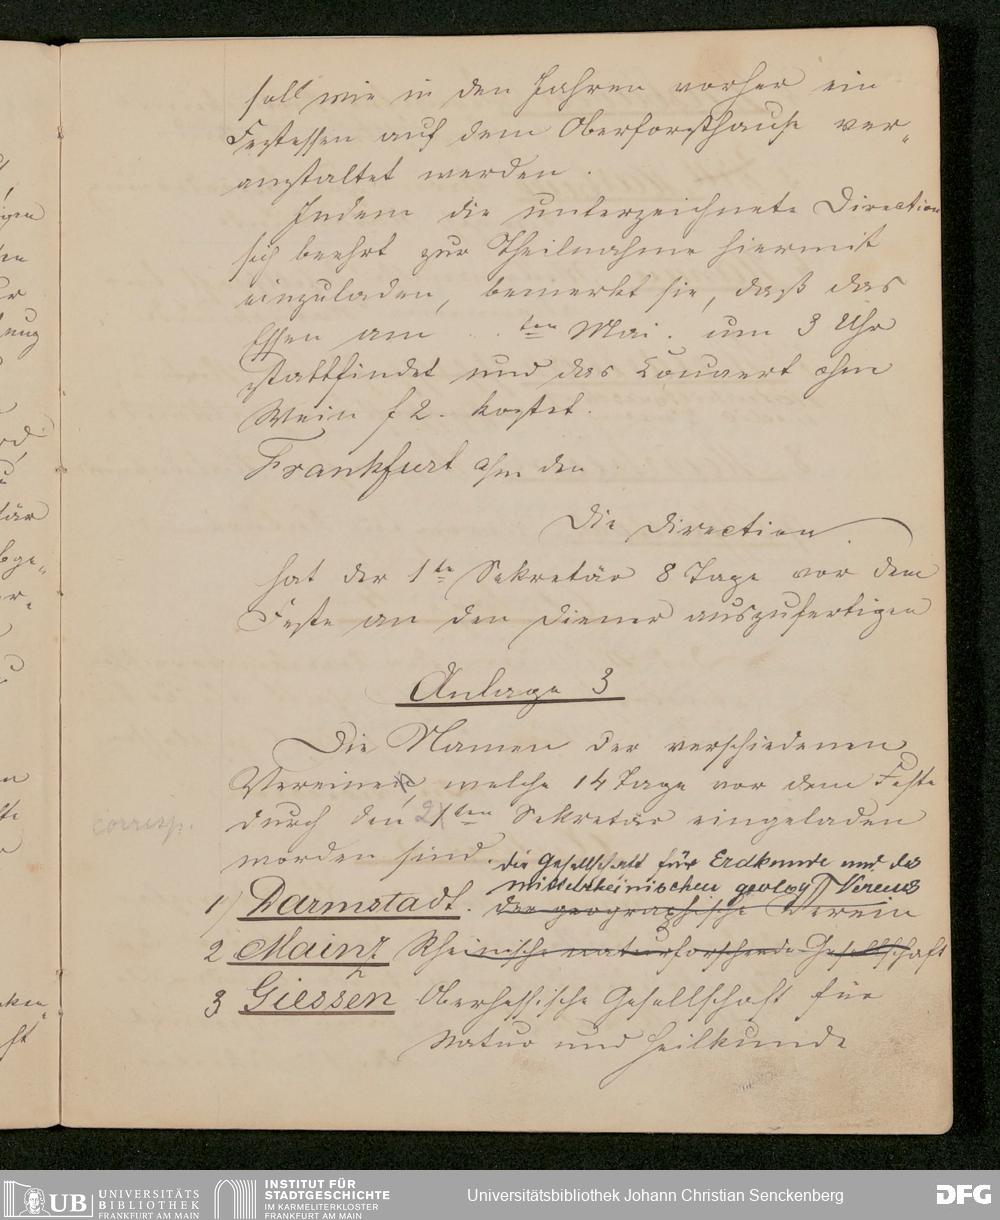 soll wie in den Jahren vorher ein
Festessen auf dem Oberforsthause ver-
anstaltet werden.
Indem die unterzeichnete Direction
sich beehrt zur Theilnahme hiermit
einzuladen, bemerkt sie, daß das
Essen am . . ten Mai . um 3 Uhr
stattfindet und das Couvert ohne
Wein f 2. kostet.
Frankfurt a/m den
Die Direction.
hat der 1te Sekretär 8 Tage vor dem
Feste an den Diener auszufertigen
Anlage 3
Die Namen der verschiedenen
Vereine, welche 14 Tage vor dem Feste
corresp.
durch den 2ten Sekretär eingeladen
worden sind.
die Gesellschaft für Erdkunde und des
mittelrheinischen geolog Vereins
1) Darmstadt. Der geographische Verein
2 Mainz Rheinische naturforschende Gesellschaft
3 Giessen Oberhessische Gesellschaft für
Natur und Heilkunde
UB UNIVERSITÄTS
BIBLIOTHEK
FRANKFURT AM MAIN
INSTITUT FÜR
STADTGESCHICHTE
IM KARMELITERKLOSTER
FRANKFURT AM MAIN
Universitätsbibliothek Johann Christian Senckenberg
DFG